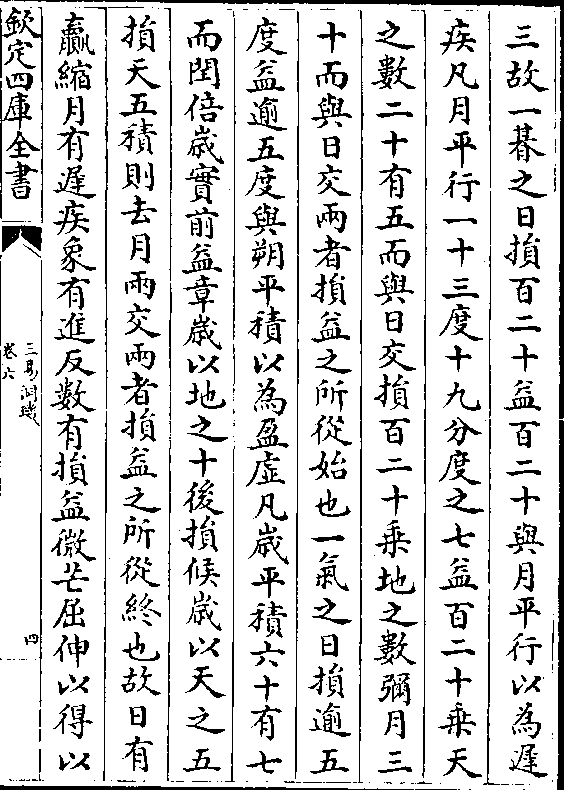 三故一朞之日損百二十益百二十與月平行以為遲
疾凡月平行一十三度十九分度之七益百二十乗天
之數二十有五而與日交損百二十乗地之數彌月三
十而與日交兩者損益之所從始也一氣之日損逾五
度益逾五度與朔平積以為盈虛凡歲平積六十有七
而閏倍歲實前益章歲以地之十後損候歲以天之五
損天五積則去月兩交兩者損益之所從終也故日有
贏縮月有遲疾象有進反數有損益微芒屈伸以得以
欽定四庫全書
三易洞璣
卷六
四